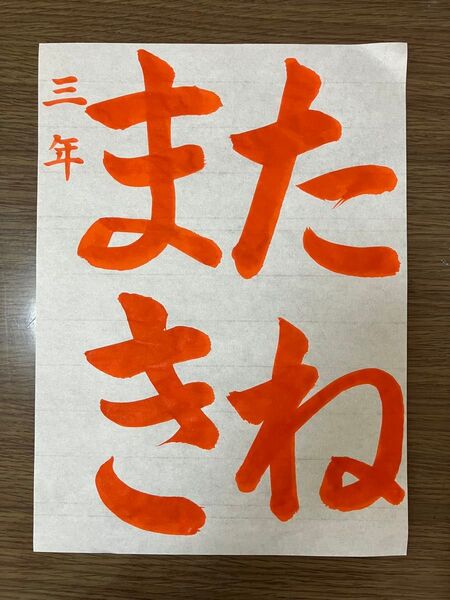 たね
まき
三年